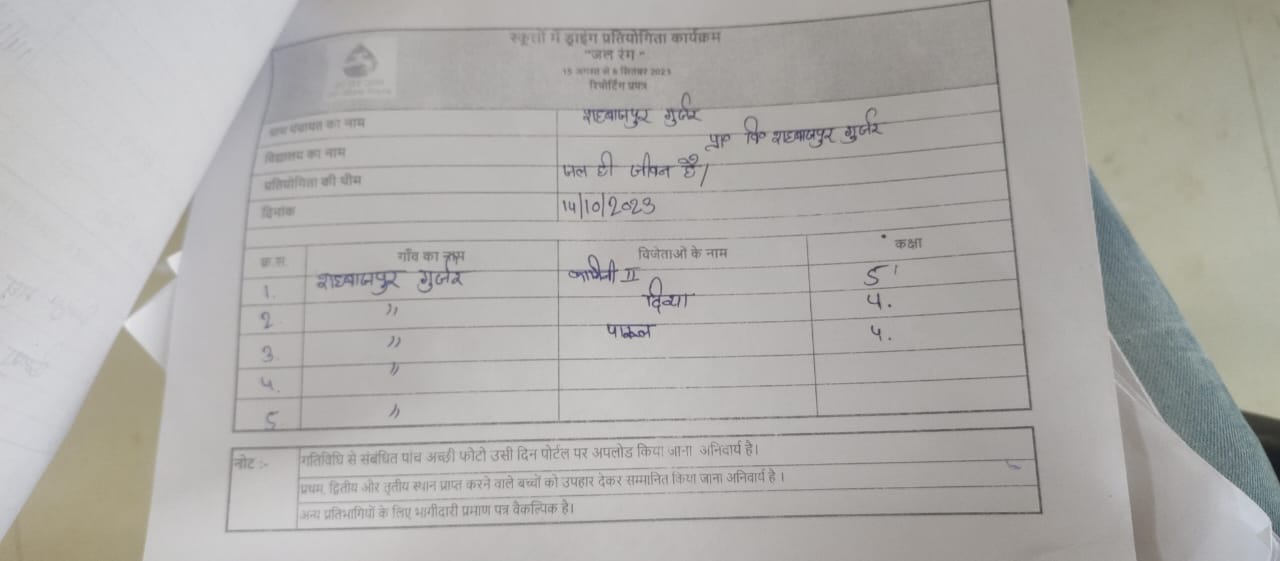 स्कूलों में ड्राइंग प्रतियोगिता कार्यक्रम
"जल रंग"
15 अगस्त से 8 सितंबर 2023
रिपोर्टिंग प्रपत्र
ग्राम पंचायत का नाम शहबाजपुर गुर्जर
विद्यालय का नाम प्रा० वि० शहबाजपुर गुर्जर
प्रतियोगिता की थीम जल ही जीवन है।
दिनांक 14/10/2023
क्र.स. गाँव का नाम विजेताओं के नाम कक्षा
1. शहबाजपुर गुर्जर II 5
2. " दिव्या 4.
3. " 4.
4. "
5. "
नोट :- गतिविधि से संबंधित पांच अच्छी फोटो उसी दिन पोर्टल पर अपलोड किया जाना अनिवार्य है।
प्रथम, द्वितीय और तृतीय स्थान प्राप्त करने वाले बच्चों को उपहार देकर सम्मानित किया जाना अनिवार्य है ।
अन्य प्रतिभागियों के लिए भागीदारी प्रमाण पत्र वैकल्पिक है।